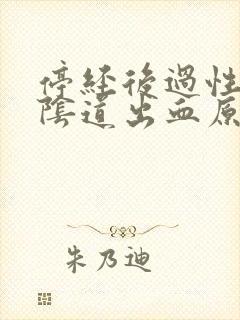 停經後過性
陰道出血原
朱乃迪